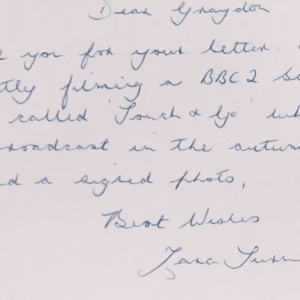 Dear Graydon
you for your letter.
filming a BBC2
called 'Touch & Go'
broadcast in the autumn
a signed photo,
Best Wishes
Zara